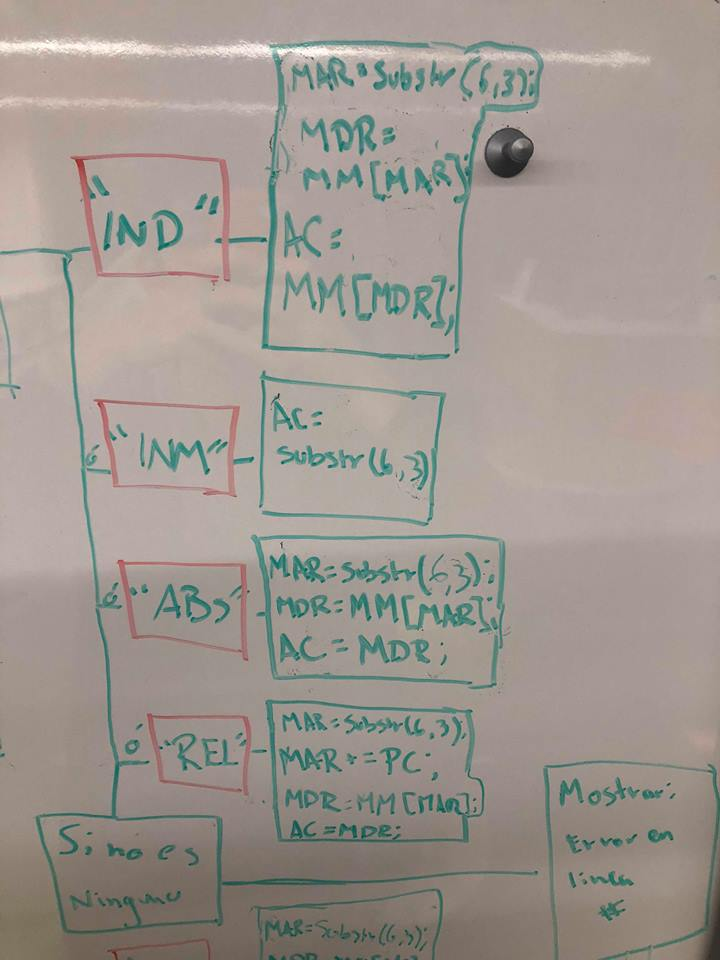 "IND"
MAR=Substr(6,3);
MDR=
MM[MAR];
AC=
MM[MDR];
ó "INM"
AC=
Substr(6,3)
ó "ABS"
MAR=Substr(6,3);
MDR=MM[MAR];
AC=MDR;
ó "REL"
MAR=Substr(6,3);
MAR+=PC;
MDR=MM[MAR];
AC=MDR;
Si no es
Ninguno
Mostrar:
Error en
linea
#
MAR=Substr(6,3);